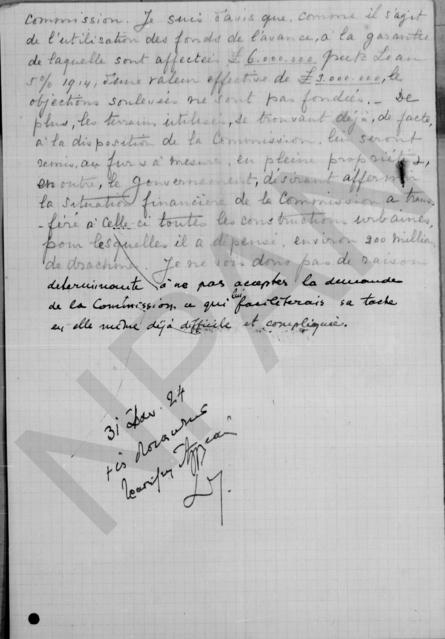 Commission. Je suis d'avis que, comme il s'agit
de l'utilisation des fonds de l'avance, à la garantie
de laquelle sont affectées £ 6.000.000 Greek Loan
5% 1914, d'une valeur effective de £ 3.000.000, les
objections soulevées ne sont pas fondées. - De
plus, les terrains utilisés, se trouvant déjà, de facto,
à la disposition de la Commission, lui seront
remis, au fur & à mesure, en pleine propriété &,
en outre, le Gouvernement, désirant affermir
la situation financière de la Commission a trans-
-féré à celle-ci toutes les constructions urbaines,
pour lesquelles il a dépensé environ 200 millions
de drachmes. Je ne vois donc pas de raison
determinante à ne pas accepter la demande
de la Commission ce qui lui faciliterais sa tache
en elle même déjà difficile et compliquée.
31 24
NPAM